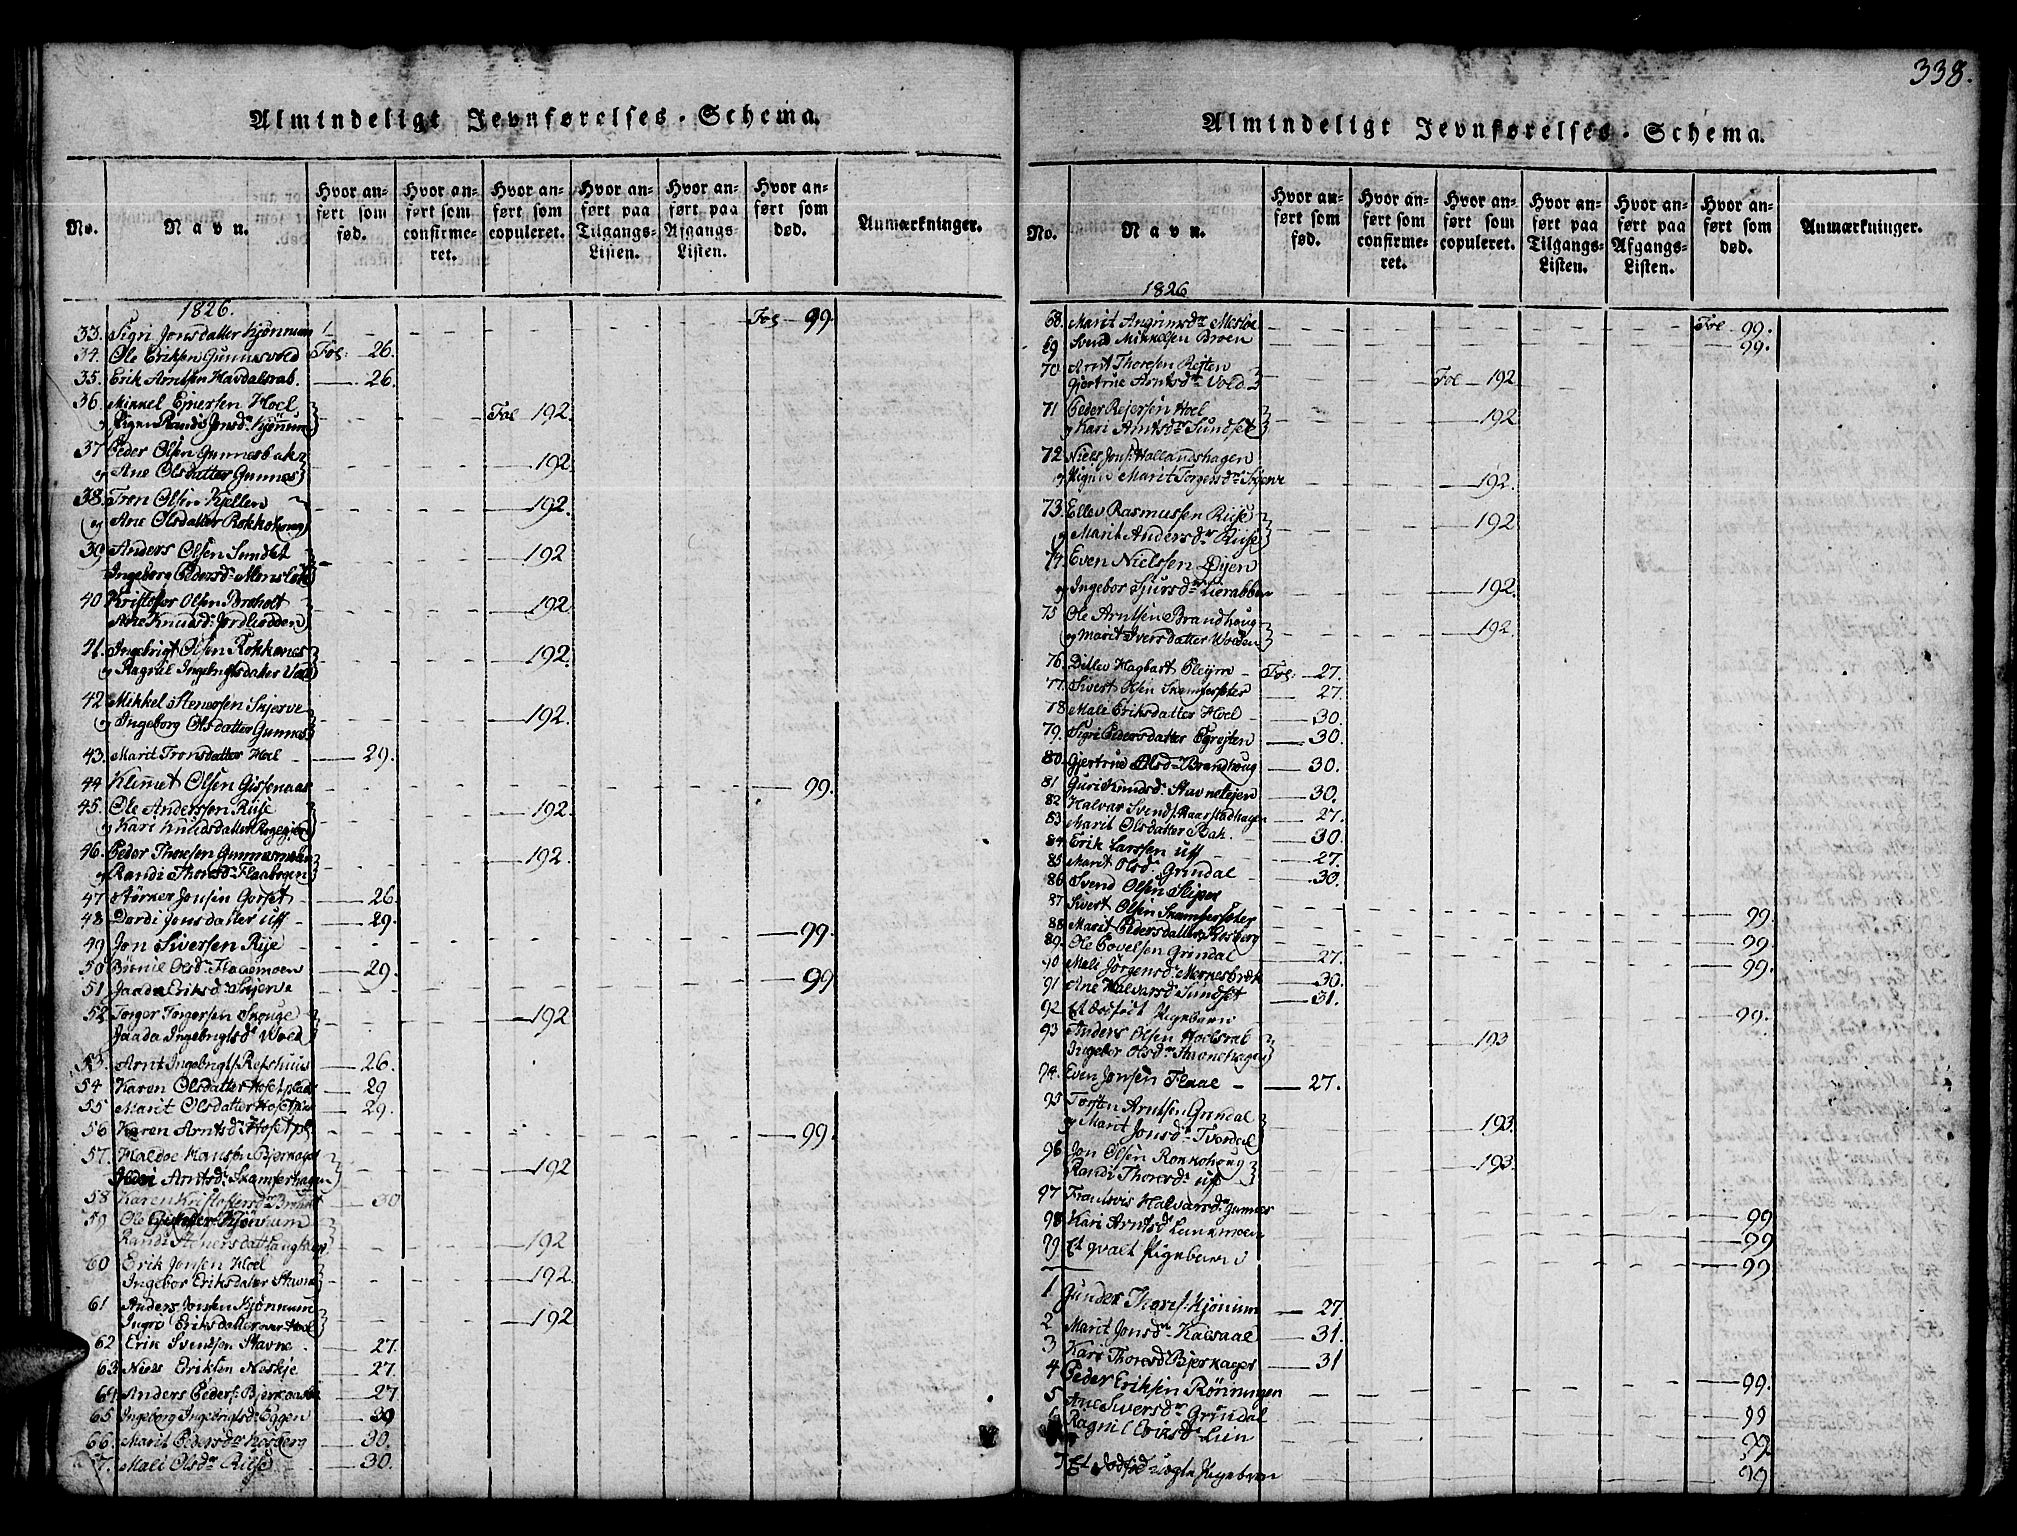 338.
Almindeligt Jevnførelses-Schema.
No.
Navn.
Hvor anført som fød.
Hvor anført som confirmeret.
Hvor anført som copuleret.
Hvor anført paa Tilgangs-Listen.
Hvor anført paa Afgangs-Listen.
Hvor anført som død.
Anmærkninger.
1826.
33. Sigri Jonsdatter Kjønnum Fol 99.
34. Ole Eriksen Gunnesvold Fol: 26.
35. Erik Arntsen Havdalsrab. 26.
36. Mikkel Ejnersen Hoel
Pigen Randi Jonsd: Kjönum Fol 192.
37 Peder Olsen Gunnesbak
og Ane Olsdatter Gunnes 192
38. Tron Olsen Kjellen
og Ane Olsdatter Rokkohoug 192.
39. Anders Olsen Sundset
Ingeborg Pedersd: 192
40 Kristoffer Olsen
Ane Knudsd: 192
41. Ingebrigt Olsen Rokkones
og Ragnil Ingebrigtsdatter Vold 192.
42 Mikkel Stenersen Skjerve
og Ingeborg Olsdatter Gunnes 192.
43. Marit Tronsdatter Hoel 29.
44 Klemet Olsen Gissenaas 99.
45. Ole Anderssen Riise
og Kari Knudsdatter 192
46. Peder Thoresen
og Randi Thoresd: Flaahagen 192
47 Størker Jonsen Gorset 26.
48. Dordi Jonsdatter Uff 29.
49 Jon Sivertsen Rise 99.
50 Olsd: Flaaemoen 29.
51 Jaada Eriksd: Skjerve 99
52 Torger Torgersen Skouge
Jaada Ingebrigtsd: Vold 192
53. Arnt Ingebrigts: Refshuus 26.
54 Karen Olsdatter Hosetplads 29
55 Marit Olsdatter 29.
56 Karen Arntsd: Hosetpl. 99
57. Haldoe Hansen Bjerkager
Arntsd: Skamferhagen 192
58 Karen Kristoffersd: 30
59 Ole Kjönnum
Randi Stenersdat 192
60 Erik Jonsen Hoel
Ingebor Eriksdatter Stavne 192.
61 Anders Jonsen Kjönnum
Ingri Eriksdatter Hoel 192
62 Erik Svendsen Stavne 27.
63 Niels Eriksen Neskje 27.
64 Anders Peders: 27
65 Ingeborg Ingebrigtsd: Eggen 30
66. Marit Pedersd: Kosberg 30.
67. Mali Olsd: Riise 30.
Almindeligt Jevnførelses-Schema.
No.
Navn.
Hvor anført som fød.
Hvor anført som confirmeret.
Hvor anført som copuleret.
Hvor anført paa Tilgangs-Listen.
Hvor anført paa Afgangs-Listen.
Hvor anført som død.
Anmærkninger.
1826
68. Marit Angrimsdr Mesloe Fol 99.
69 Svend Mikkelsen Broen 99.
70 Arnt Thoresen Rejten
Gjertrue Arntsdr Vold Fol 192
71 Peder Rejersen Hoel
og Kari Arntsdr Sundset 192
72 Niels Jons: Hollandshagen
Marit Torgersdr Skjerve 192.
73. Ellev Rasmussen Riise
og Marit Andersdr Riise 192
74 Even Nielssen Øijen
og Ingebor Sjursdr Lierabben 192.
75 Ole Arntsen Brandhoug
og Marit Iversdatter Volden 192.
76. Ditlev Hagbart Fol: 27.
77. Sivert Olsen Skamfersæter 27.
78 Mali Eriksdatter Hoel 30.
79. Sigri Pedersdatter 30.
80 Gjertrue Olsd: Brandhoug 30.
81 Guri Knudsd: Stavnelejen 30.
82 Halvar Svends: Kaarstadhagen 27.
83 Marit Olsdatter Bak. 30.
84 Erik Larssen Uff 27.
85 Marit Olsd: Grindal 30.
86 Svend Olsen
87 Sivert Olsen Skamfersæter 99
88 Marit Pedersdatter Kosberg 99
89 Ole Povelsen Grindal 27.
90 Mali Jørgensd: 30
91 Ane Halvarsd: Sundset 31.
92 Et Pigebarn 99.
93 Anders Olsen Hoelsrab
Ingebor Olsdr Stavnehagen 193
94. Even Jonsen Flaae 27.
95 Torsten Arntsen Grindal
og Marit Jonsd: 193.
96 Jon Olsen Rokkohoug
Randi Thoresd: Uff 193.
97 Halvarsd: Gunnes 99
98 Kari Arntsd: 99
99 Et Pigebarn 99
1 Gunder Thores: Kjönum 27
2 Marit Jonsd: Kalsaae 31.
3 Kari Thoresd: Bjerkager 31
4 Peder Eriksen Rönningen 99.
5 Ane Siversdr Grindal 99
6 Ragnil Eriksd: Lien 99.
7 Et Pigebarn 99